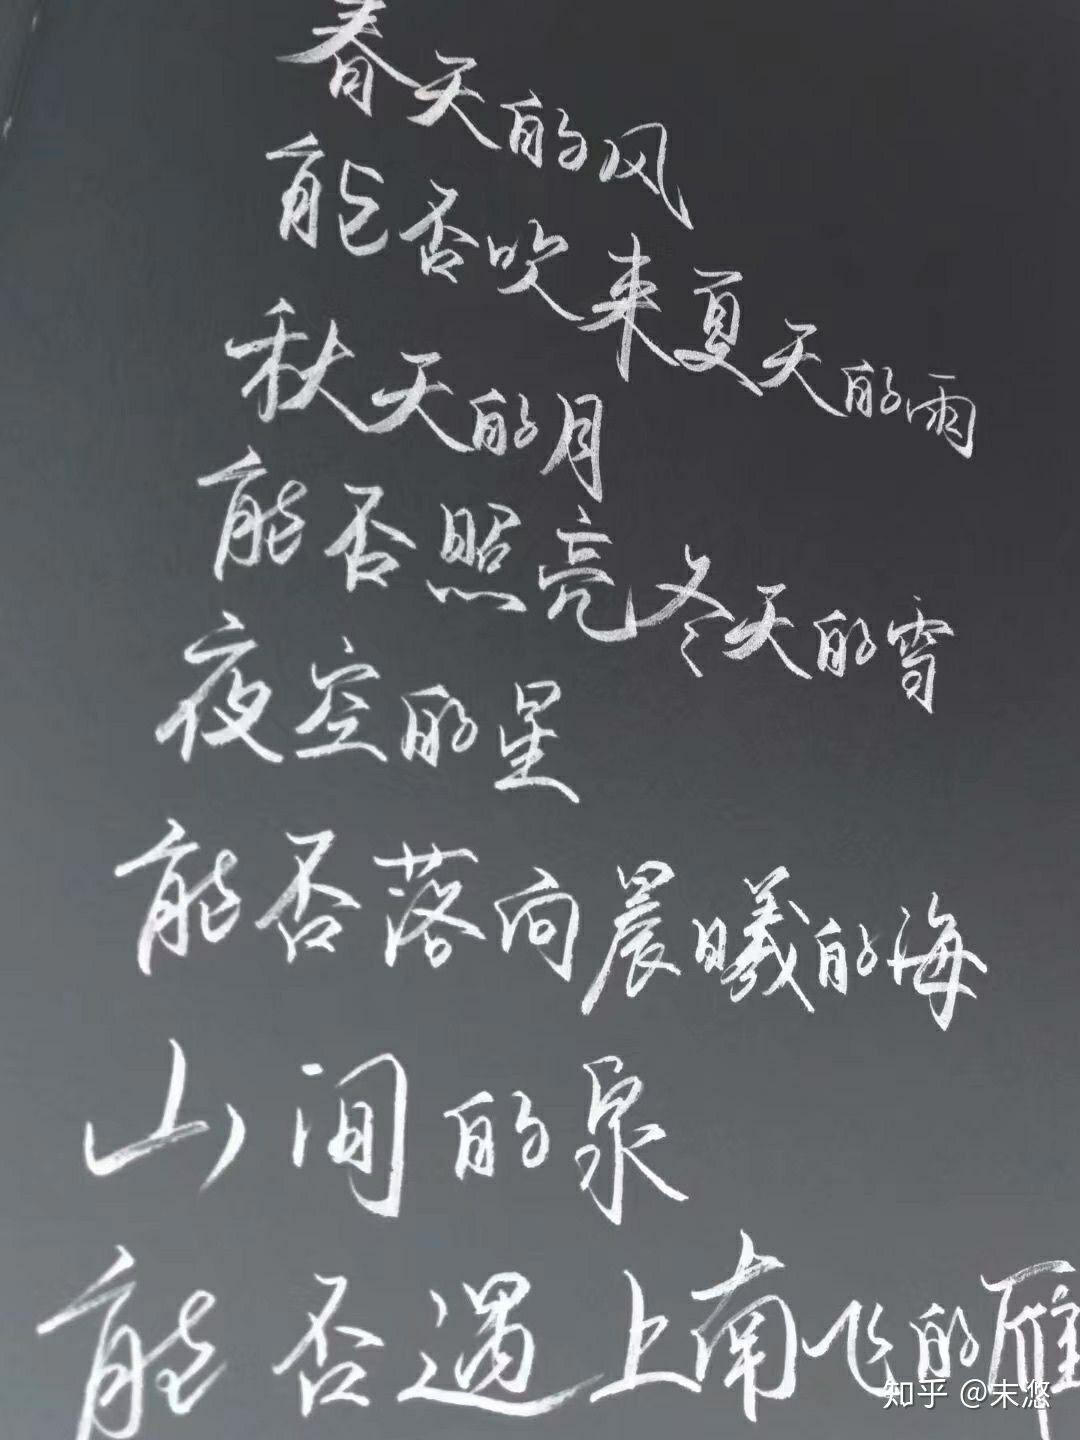 春天的风
能否吹来夏天的雨
秋天的月
能否照亮冬天的雪
夜空的星
能否落向晨曦的海
山间的泉
能否遇上南飞的雁
知乎 @末悠